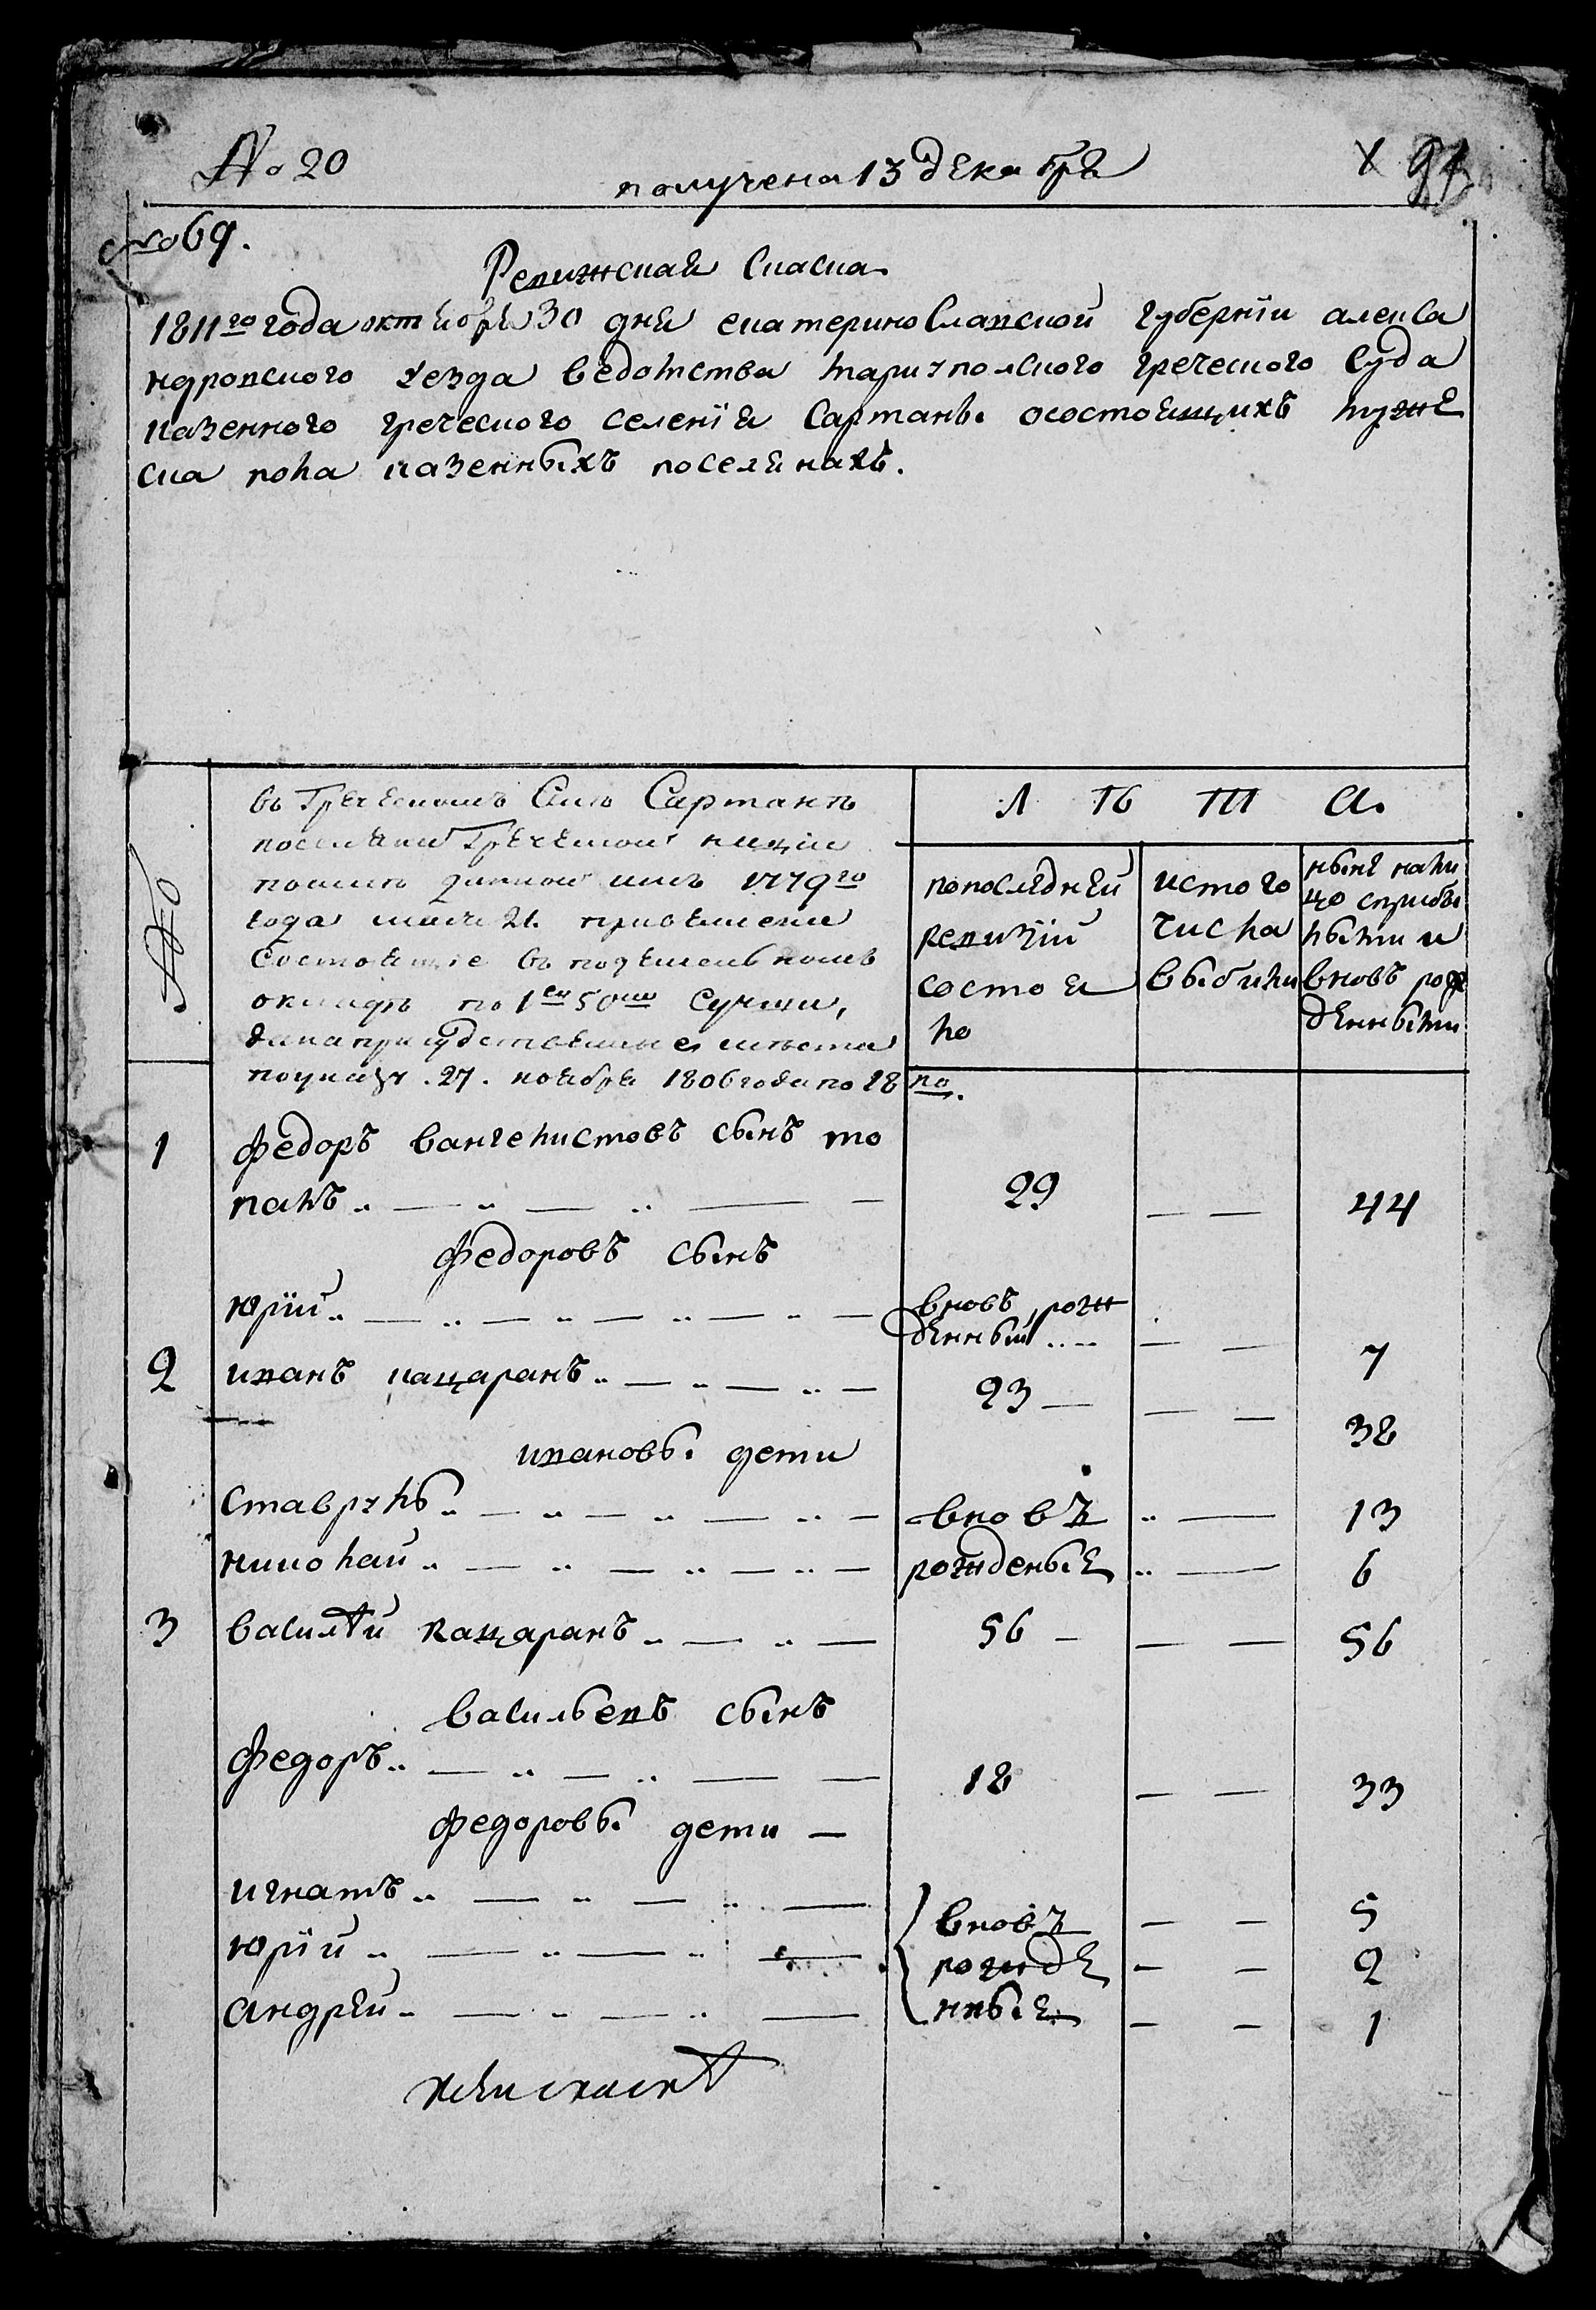 No 20
получена 13 декабря
х 97
No 69.
Ревижская Скаска
1811го года октября 30 дня екатеринославской губернии алекса
ндровского уезда ведомства мариупольского греческого суда
казенного греческого селения Сартаны о состоящихъ мужe
ска пола казенныхъ поселянахъ.
No
въ Греческомъ Селѣ Сартанѣ
поселяне Греческой нации
по силѣ данной имъ 1779го
года маия 21. привилегии
Состоящие въ подушевъномъ
окладѣ по
по указу .27. ноября 1806 года по 18 ко.
Л Ѣ Т А.
по последней
ревизии
состоя
ло
ис того
числа
выбили
ныне нали
цо с прибы
лыми и
вновъ рож
денными
1 федоръ вангелистовъ сынъ то
палъ 29 44
федоровъ сынъ
юрий вновъ рож
денный 7
2 иванъ кацаранъ 23 38
ивановы дети
ставрулъ вновъ 13
николай рожденые 6
3 василѣй кацаранъ 56 56
васильевъ сынъ
федоръ 18 33
федоровы дети
игнатъ вновъ 5
юрий рожде 2
андрей нные 1